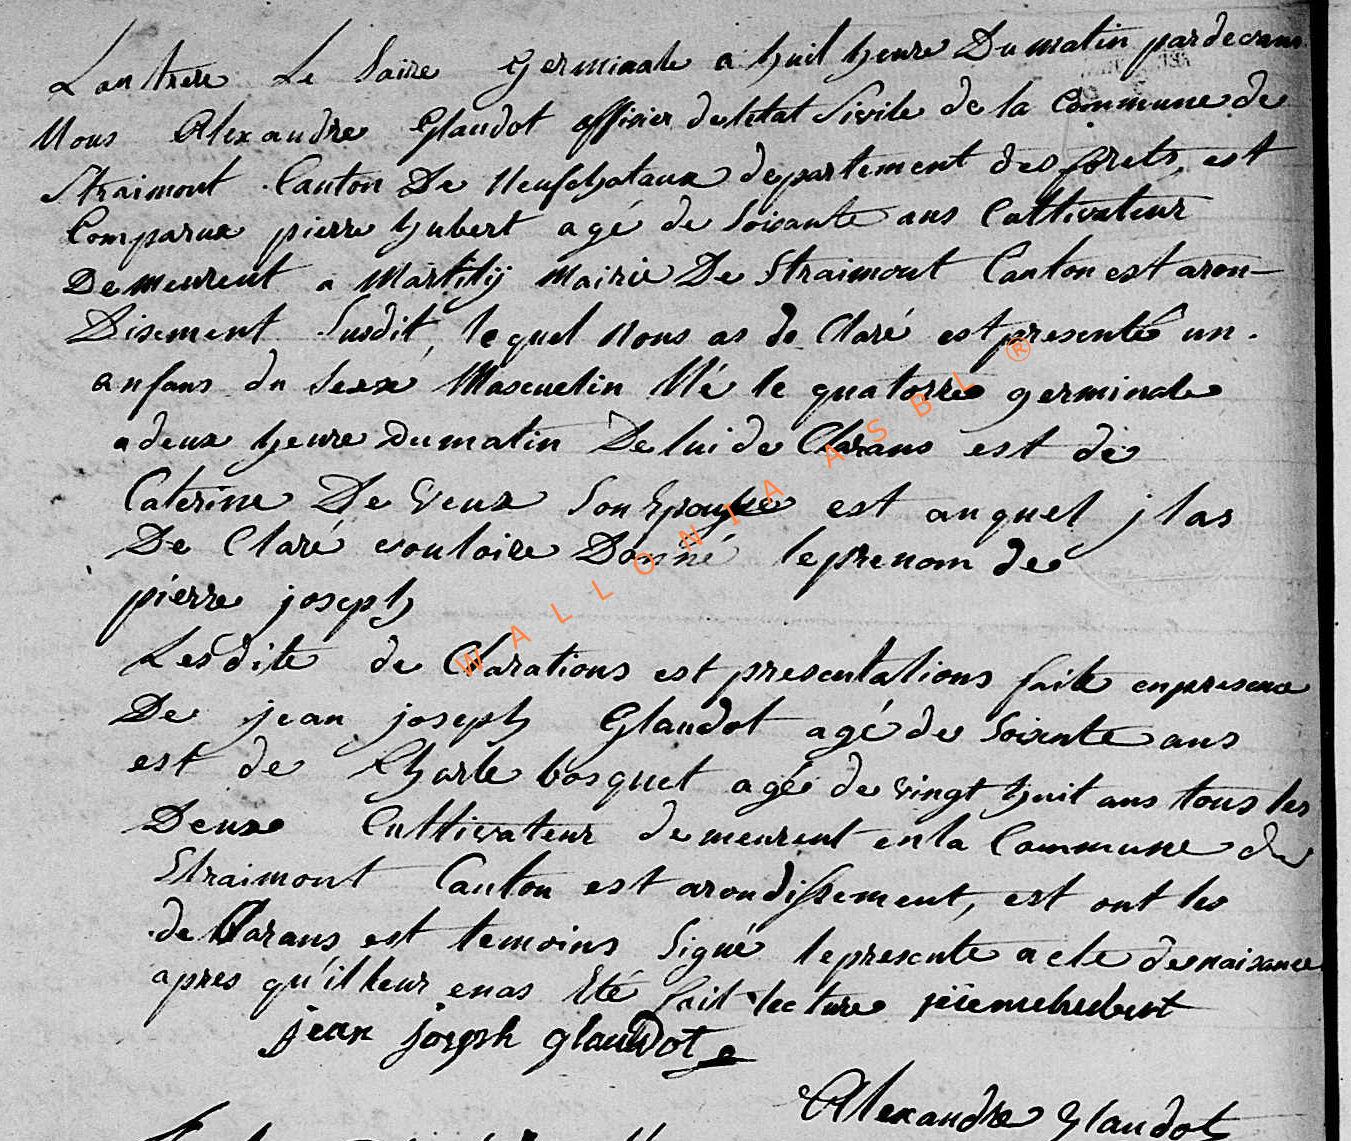 L'an treze Le Saize Germinale a huit heure Du matin pardevant
Nous Alexandre Glaudot officier deletat Sivile de la Commune de
Straimont Canton De Neufchataux departement des forets, est
Comparux pierre hubert agé de Soixante ans Cultivateur
Demeurent a Martilÿ Mairie De Straimont Canton est aron-
Disement Susdit, lequel Nous as de Claré est presenté un
anfans du Sexe Masculin Né le quatorze germinale
a deux heure Dumatin De lui de Clarans est de
Caterine De Veux Son Epouse est auquel jl as
De Claré vouloire Donné leprenom de
pierre joseph
Lesdite de Clarations est presentations faite enpresence
De jean joseph Glaudot agé de Soixente ans
est de Charle bosquet agé de vingt huit ans tous les
Deux Cultivateur demeurent enla Commune de
Straimont Canton est arondissement, est ont les
de Clarans est temoins Signé lepresente acte denaisance
apres qu'il leur enas Eté fait lecture hubert
jean joseph glaudot
Alexandre Glaudot
WALLONIA ASBL ®